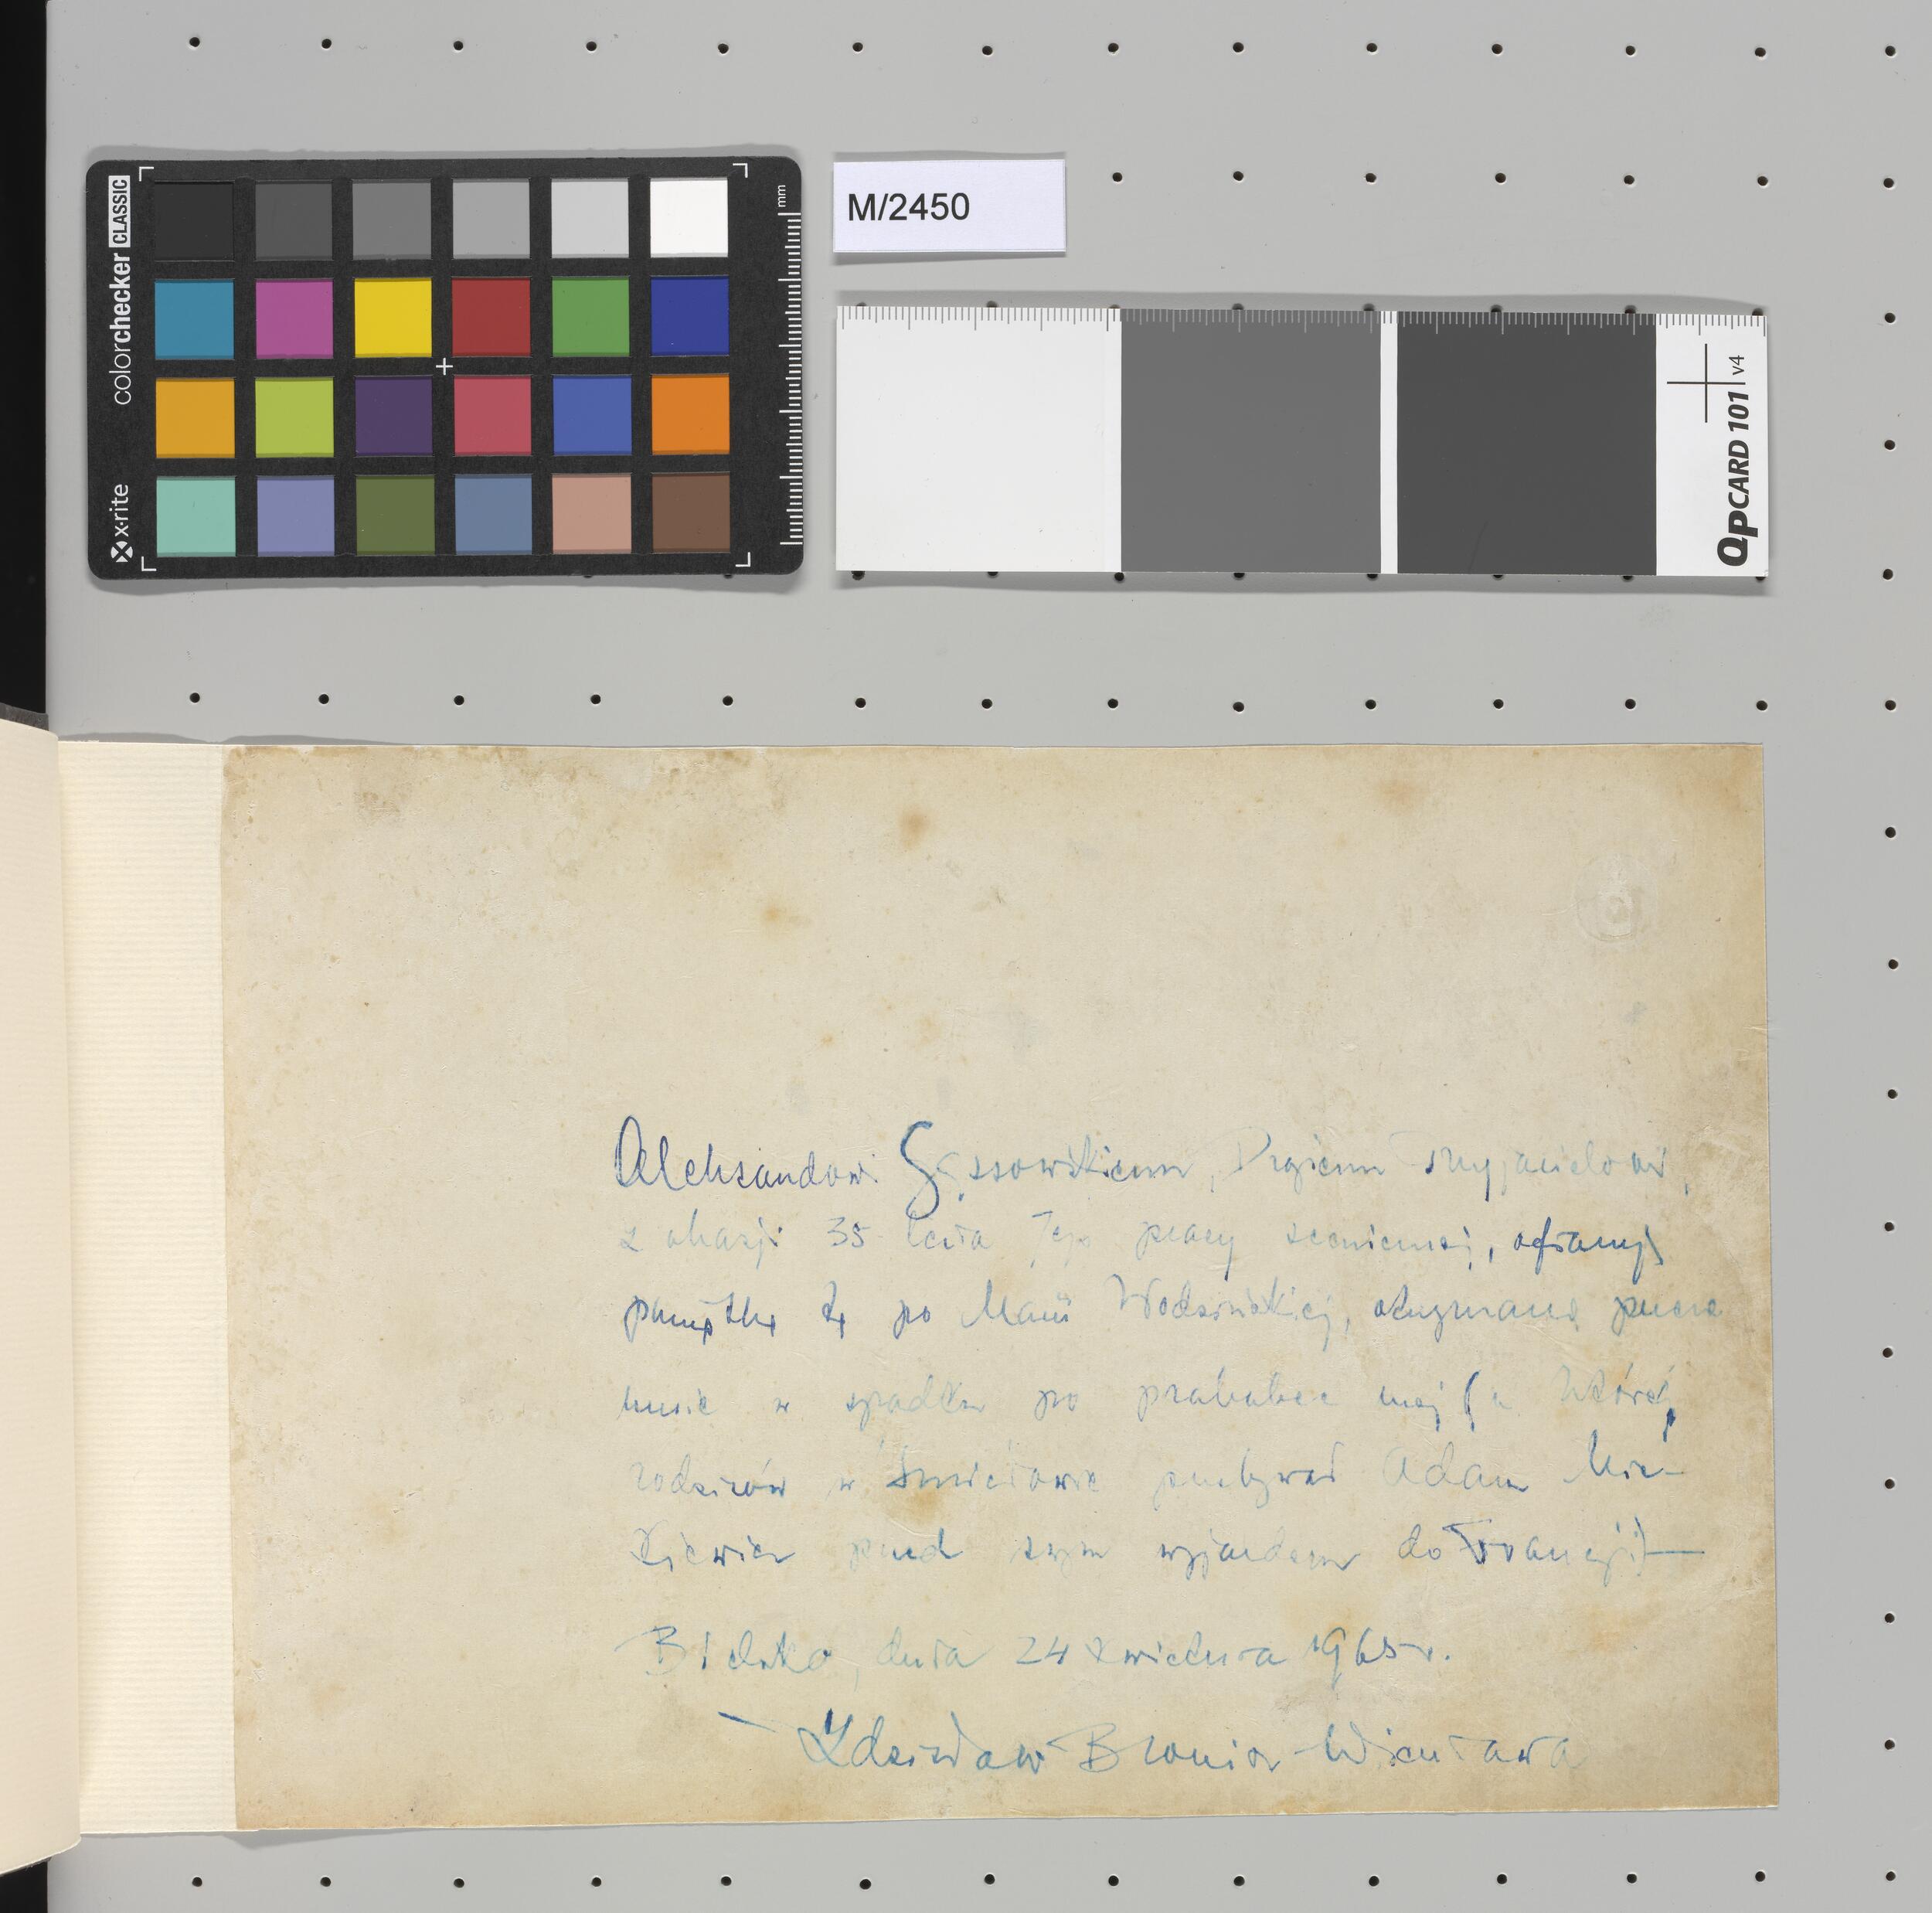 colorchecker CLASSIC
x-rite
mm
M/2450
QPCARD 101 v4
Aleksandowi Gąssowskiemu, Drogiemu Przyjacielowi,
z okazji 35 lecia Jego pracy scenicznej, ofiaruję
pamiątkę tę po Marii Wodzińskiej, otrzymaną przeze
mnie w spadku po prababce mej (u której
rodziców w Śmiełowie przebywał Adam Mic-
kiewicz przed swym wyjazdem do Francji)—
Bielsko, dnia 24 kwietnia 1965 r.
Zdzisław Bronicz-Wieniawa